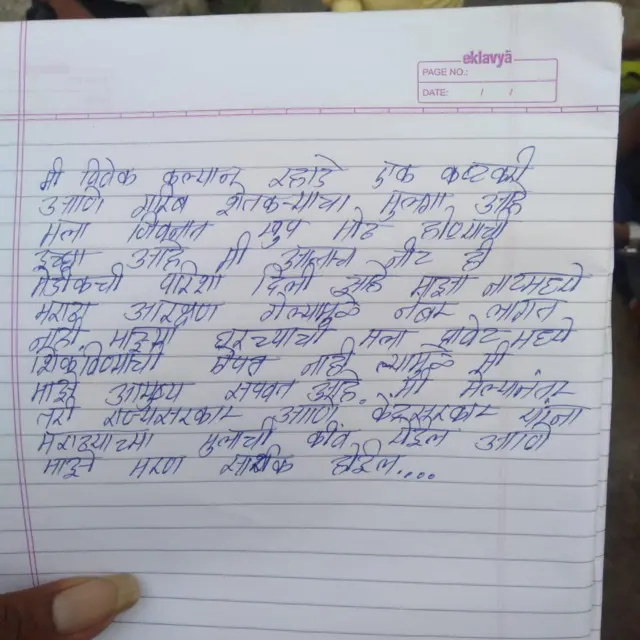 eklavyā
PAGE NO.:
DATE: / /
मी विवेक कल्यान रहाडे एक कष्टकरी
आणि गरिब शेतकऱ्याचा मुलगा आहे
मला जिवनात खुप मोठ होण्याची
इच्छा आहे मी आत्ताच नीट ही
मेडीकची परिक्षा दिली आहे माझा नीटमध्ये
मराठा आरक्षण गेल्यामुळे नंबर लागत
नाही माझ्या घरच्याची मला प्रायवेट मध्ये
शिकविण्याची ऐपत नाही त्यामुळे मी
माझे आयुष्य संपवत आहे. मी मेल्यानंतर
तरी राज्यसरकार आणि केंद्रसरकार यांना
मराठ्याच्या मुलाची कीव येईल आणि
माझे मरण सार्थक होईल....